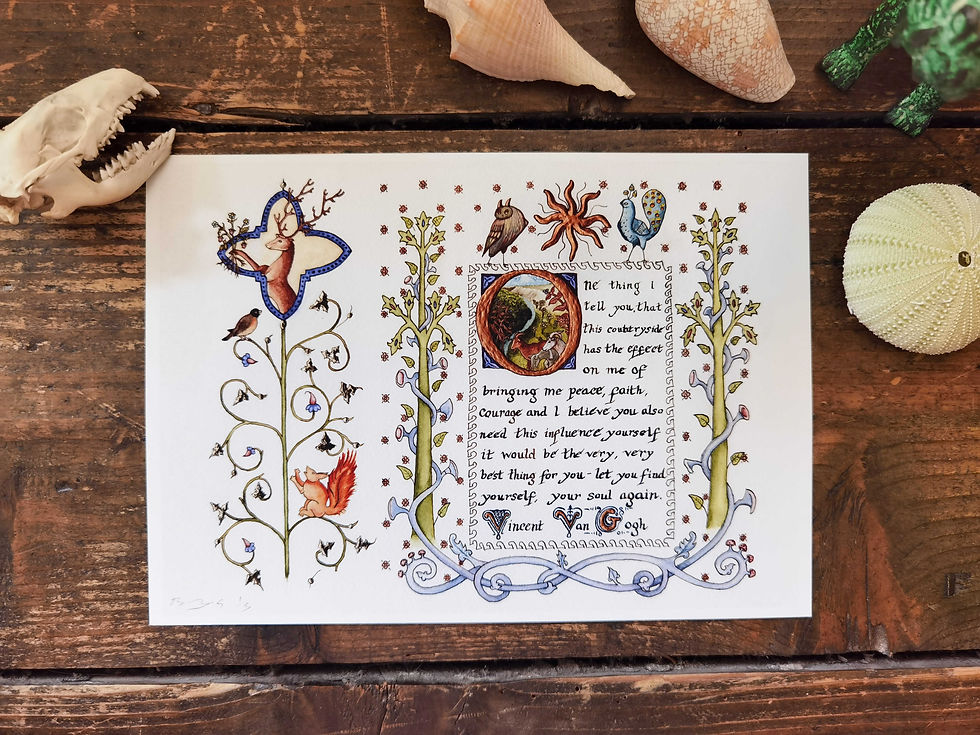 One thing I
tell you, that
this countryside
has the effect
on me of
bringing me peace, faith,
courage and I believe you also
need this influence yourself
it would be the very, very
best thing for you - let you find
yourself, your soul again.
Vincent Van Gogh